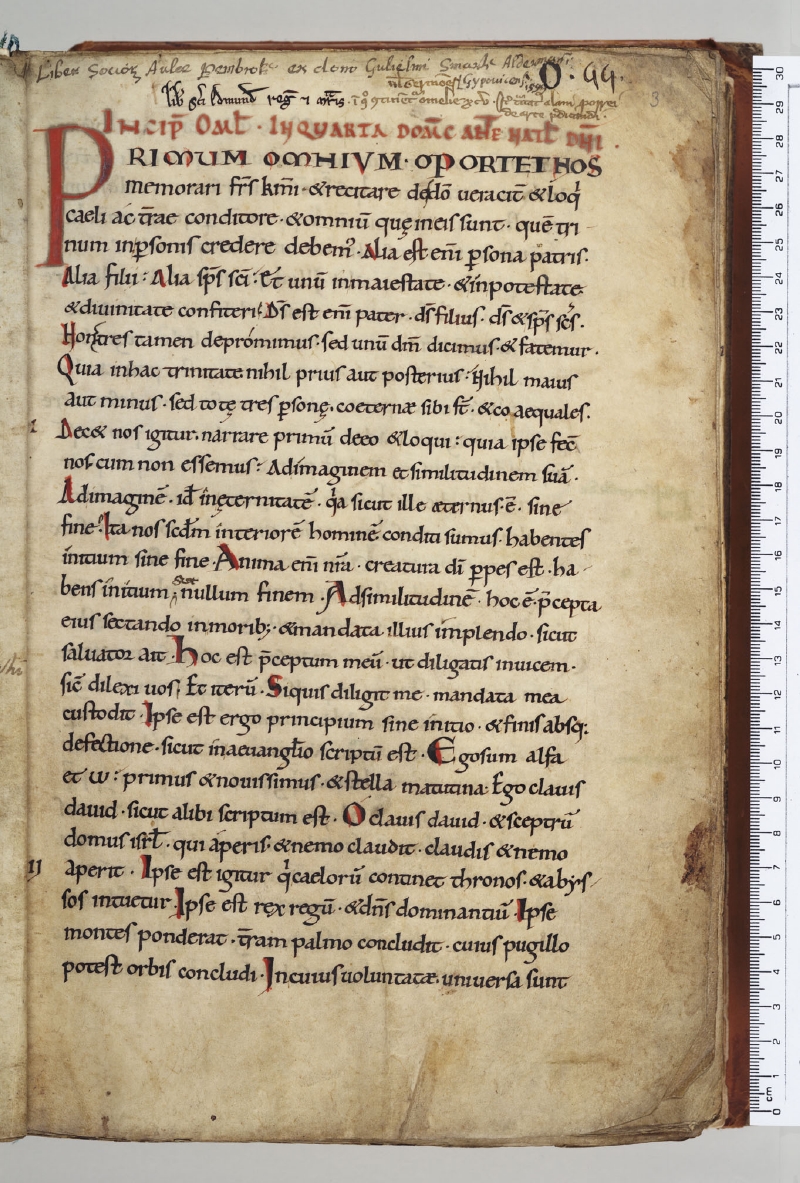 Liber Socioꝝ Aulæ Pembrok: ex dono Gulielmi Smarte Aldermani
Gypovicensis
O. GG.
3
lib sc̄i edmundi reg̅ ⁊ m̄ris
INCIP̄ OMĒL · IN QUARTA DOM̄C ANTE NATL̄ DN̄I
PRIMUM OMNIVM · OPORTET NOS
memorari fr̄s km̄i · & recitare de dō veracit̄ & loq͛
caeli ac t̄rae conditore · & omniū quę in eis sunt · quē tri
num in ꝑsonis credere debem᷒. Alia est eni̅ ꝑsona patris.
Alia filii : Alia sp̄s sc̄i. Et unū in maiestate · & in potestate
& diuinitate confiteri. Ds̄ est eni̅ pater · ds̄ filius · ds̄ & sp̄s sc̄s.
Non tres tamen deprómimus · sed unū dm̄ dicimus · & fatemur.
Quia in hac trinitate nihil prius aut posterius : Nihil maius
aut minus · sed totę tres ꝑsonę · coeternæ sibi s̄t · & coaequales.
I Dec& nos igitur · narrare primū de eo & loqui : quia ipse fec̄
nos cum non essemus : Ad imaginem et similitudinem suā ·
Ad imaginē · id̄ in ęternitatē · q͛a sicut ille æternus · ē · sine
fine : Ita nos sc̄dm interiorē hominē conditi sumus · habentes
initium sine fine · Anima eni̅ nr̄a · creatura dī ꝑpes est · ha
bens initium, nullum finem · Ad similitudinē · hoc ē · p̄cepta
eius sectando in morib; · & mandata illius implendo · sicut
saluator ait · Hoc est p̄ceptum meū · ut diligatis inuicem ·
sic̄ dilexi uos; Et iterū · Siquis diligit me · mandata mea
custodit · Ipse est ergo principium sine initio · & finis absq;
defectione · sicut in aeuangl̄io scriptū est · Ego sum alfa
et ω : primus & nouissimus · & stella matutina · Ego clauis
dauid · sicut alibi scriptum est · O clauis dauid · & sceptrū
domus isrl̄ · qui aperis · & nemo claudit · claudis & nemo
II aperit · Ipse est igitur q͛ caelorū continet thronos · & abys
sos intuetur · Ipse est rex regū · & dn̄s dominantiū · Ipse
montes ponderat · t̄ram palmo concludit · cuius pugillo
potest orbis concludi · In cuius uoluntatæ · uniuersa sunt